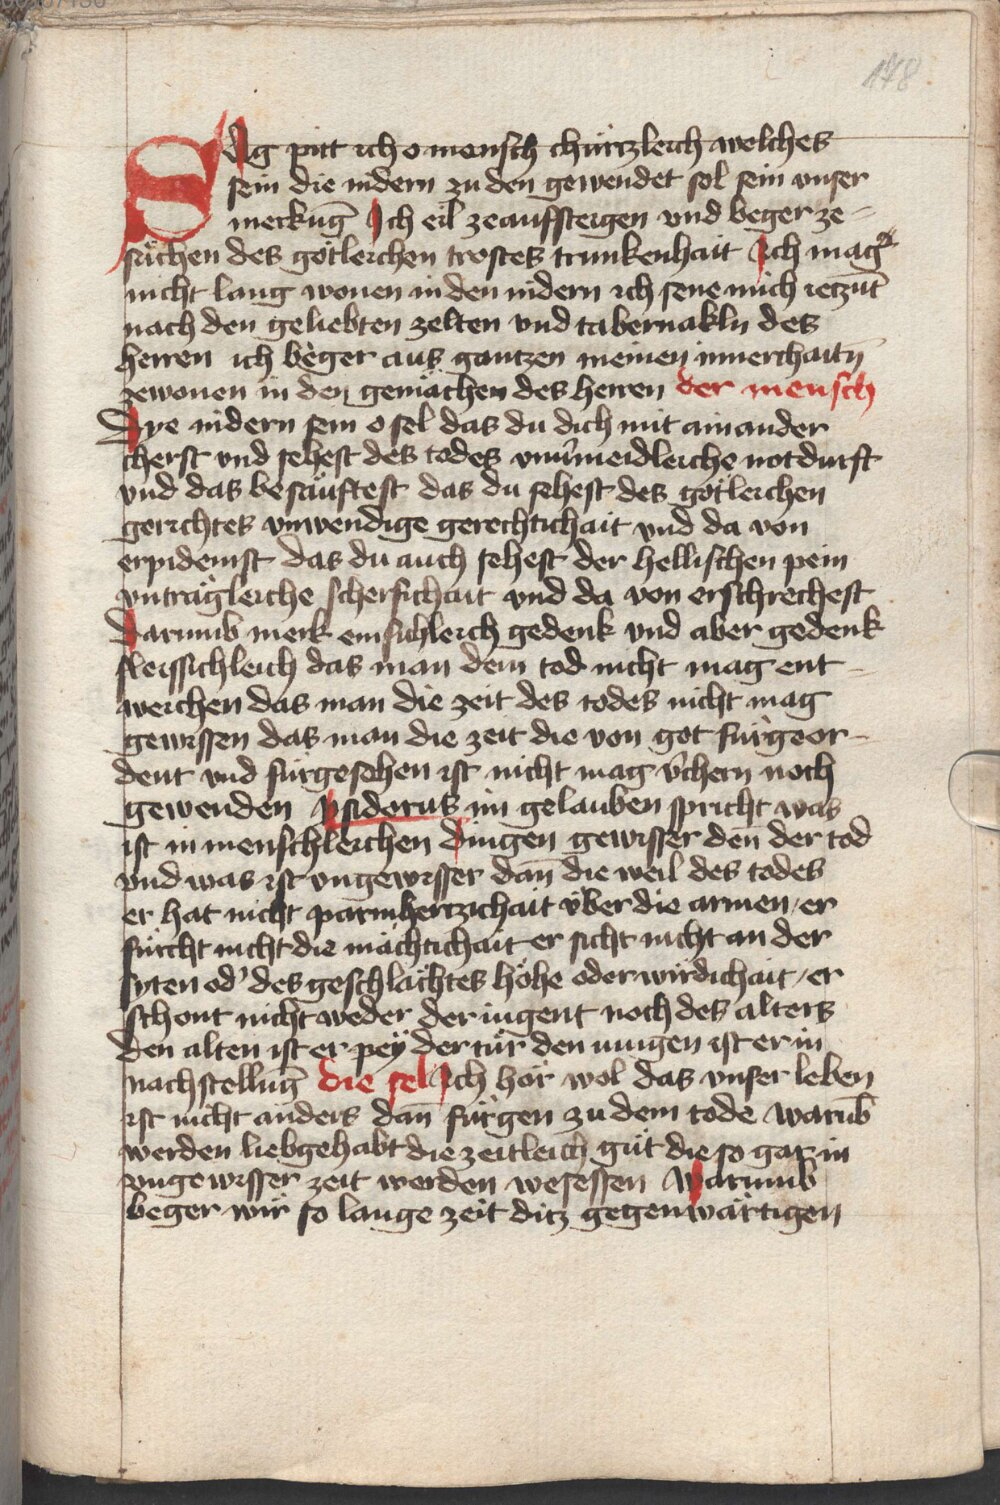 178
SAg pitt ich o mensch chürtzleich welches
sein die nidern zu den gewendet sol sein vnser
merkūg Ich eil zeauffsteigen vnd beger ze-
suͤchen des gotleichen trostes trunkenhait Ich mag
nicht lang wonen in den nidern ich sene mich ieczūt
nach den geliebten zelten vnd tabernakln des
herren ich beger aus gantzen meinen innerchaitn̄
zewonen in den gemächen des herren der mensch
Dye nidern sein o sel das du dich mit ainander
cherst vnd sehest des todes vnūmeidleiche notdurft
vnd das besäuftest das du sehest des götleichen
gerichtes vnwendige gerechtichait vnd da von
erpidemst das du auch sehest der hellischen pein
vnträgleiche scherfichait vnd da von erschrechest
Darumb merk einsichleich gedenk vnd aber gedenk
fleissichleich das man dem tod nicht mag ent-
weichen das man die zeit des todes nicht mag
gewissen das man die zeit die von got fürgeor-
dent vnd fürgesehen ist nicht mag v̾chern noch
gewenden Ysidorus im gelauben spricht was
ist in menschleichen dingen gewisser den̄ der tod
vnd was ist vngewisser dan̄ die weil des todes
er hat nicht parmhertzichait über die armen / er
fürcht nicht die mächtichait er sicht nicht an der
syten od' des geschlächtes höhe oder wirdichait / er
schont nicht weder der iugent noch des alters
Den alten ist er pey der tür den iungen ist er in
nachstellūg die sel Ich hör wol das vnser leben
ist nicht anders dan̄ fürgen zu dem tode warūb
werden liebgehabt die zeitleich güt die so gar in
vngewisser zeit werden wesessen Warumb
beger wir so lange zeit ditz gegenwärtigen